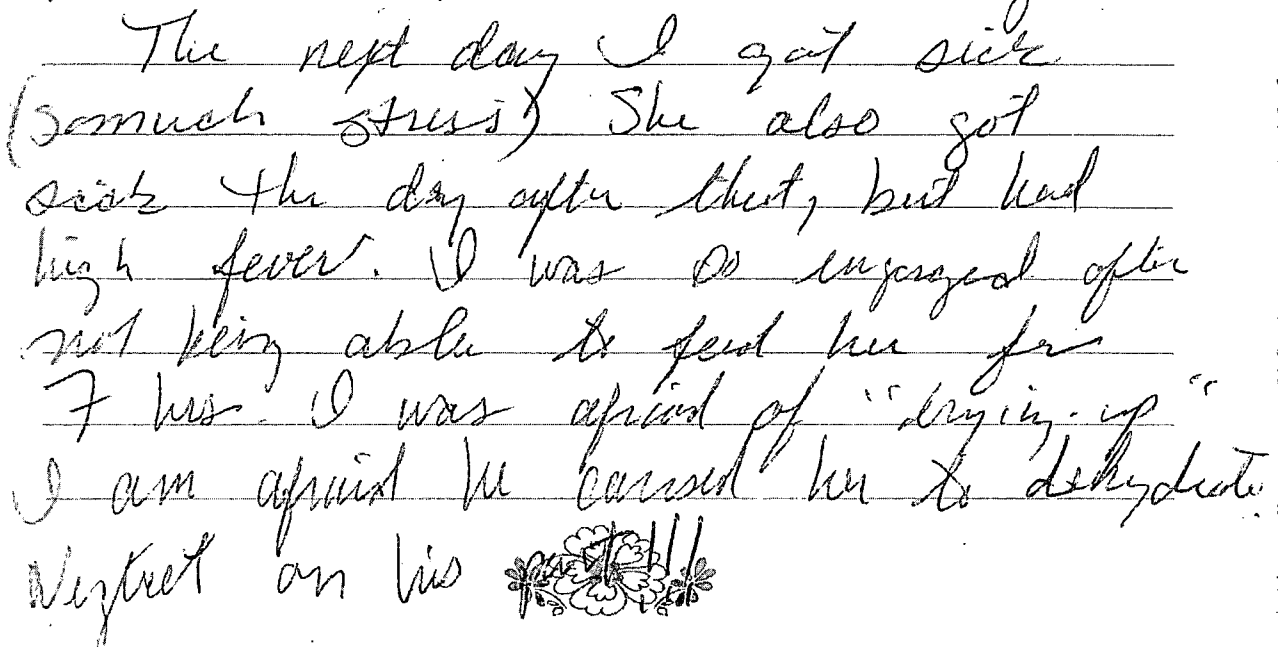 The next day I got sick
(somuch stress) She also got
sick the day after that, but had
high fever. I was so engorged after
not being able to feed her for
7 hrs. I was afriad of "drying-up"
I am afraid he caused her to dehydrate.
Neglect on his part!!!